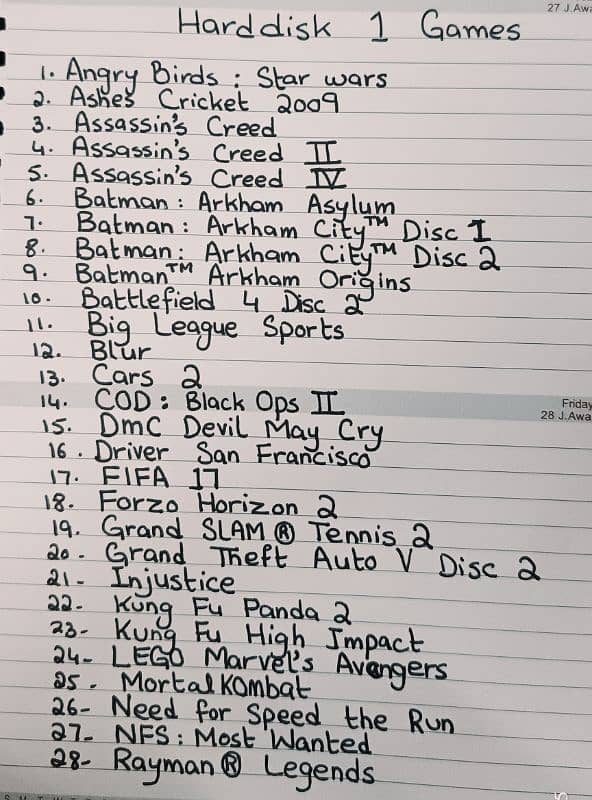 27 J.Awa
Harddisk 1 Games
1. Angry Birds : Star wars
2. Ashes Cricket 2009
3. Assassin's Creed
4. Assassin's Creed II
5. Assassin's Creed IV
6. Batman : Arkham Asylum
7. Batman : Arkham City™ Disc 1
8. Batman : Arkham City™ Disc 2
9. Batman™ Arkham Origins
10. Battlefield 4 Disc 2
11. Big League Sports
12. Blur
13. Cars 2
14. COD : Black Ops II
Friday
28 J.Awa
15. DmC Devil May Cry
16. Driver San Francisco
17. FIFA 17
18. Forzo Horizon 2
19. Grand SLAM ® Tennis 2
20. Grand Theft Auto V Disc 2
21- Injustice
22- Kung Fu Panda 2
23- Kung Fu High Impact
24- LEGO Marvel's Avengers
25. Mortal Kombat
26- Need for Speed the Run
27- NFS : Most Wanted
28- Rayman ® Legends